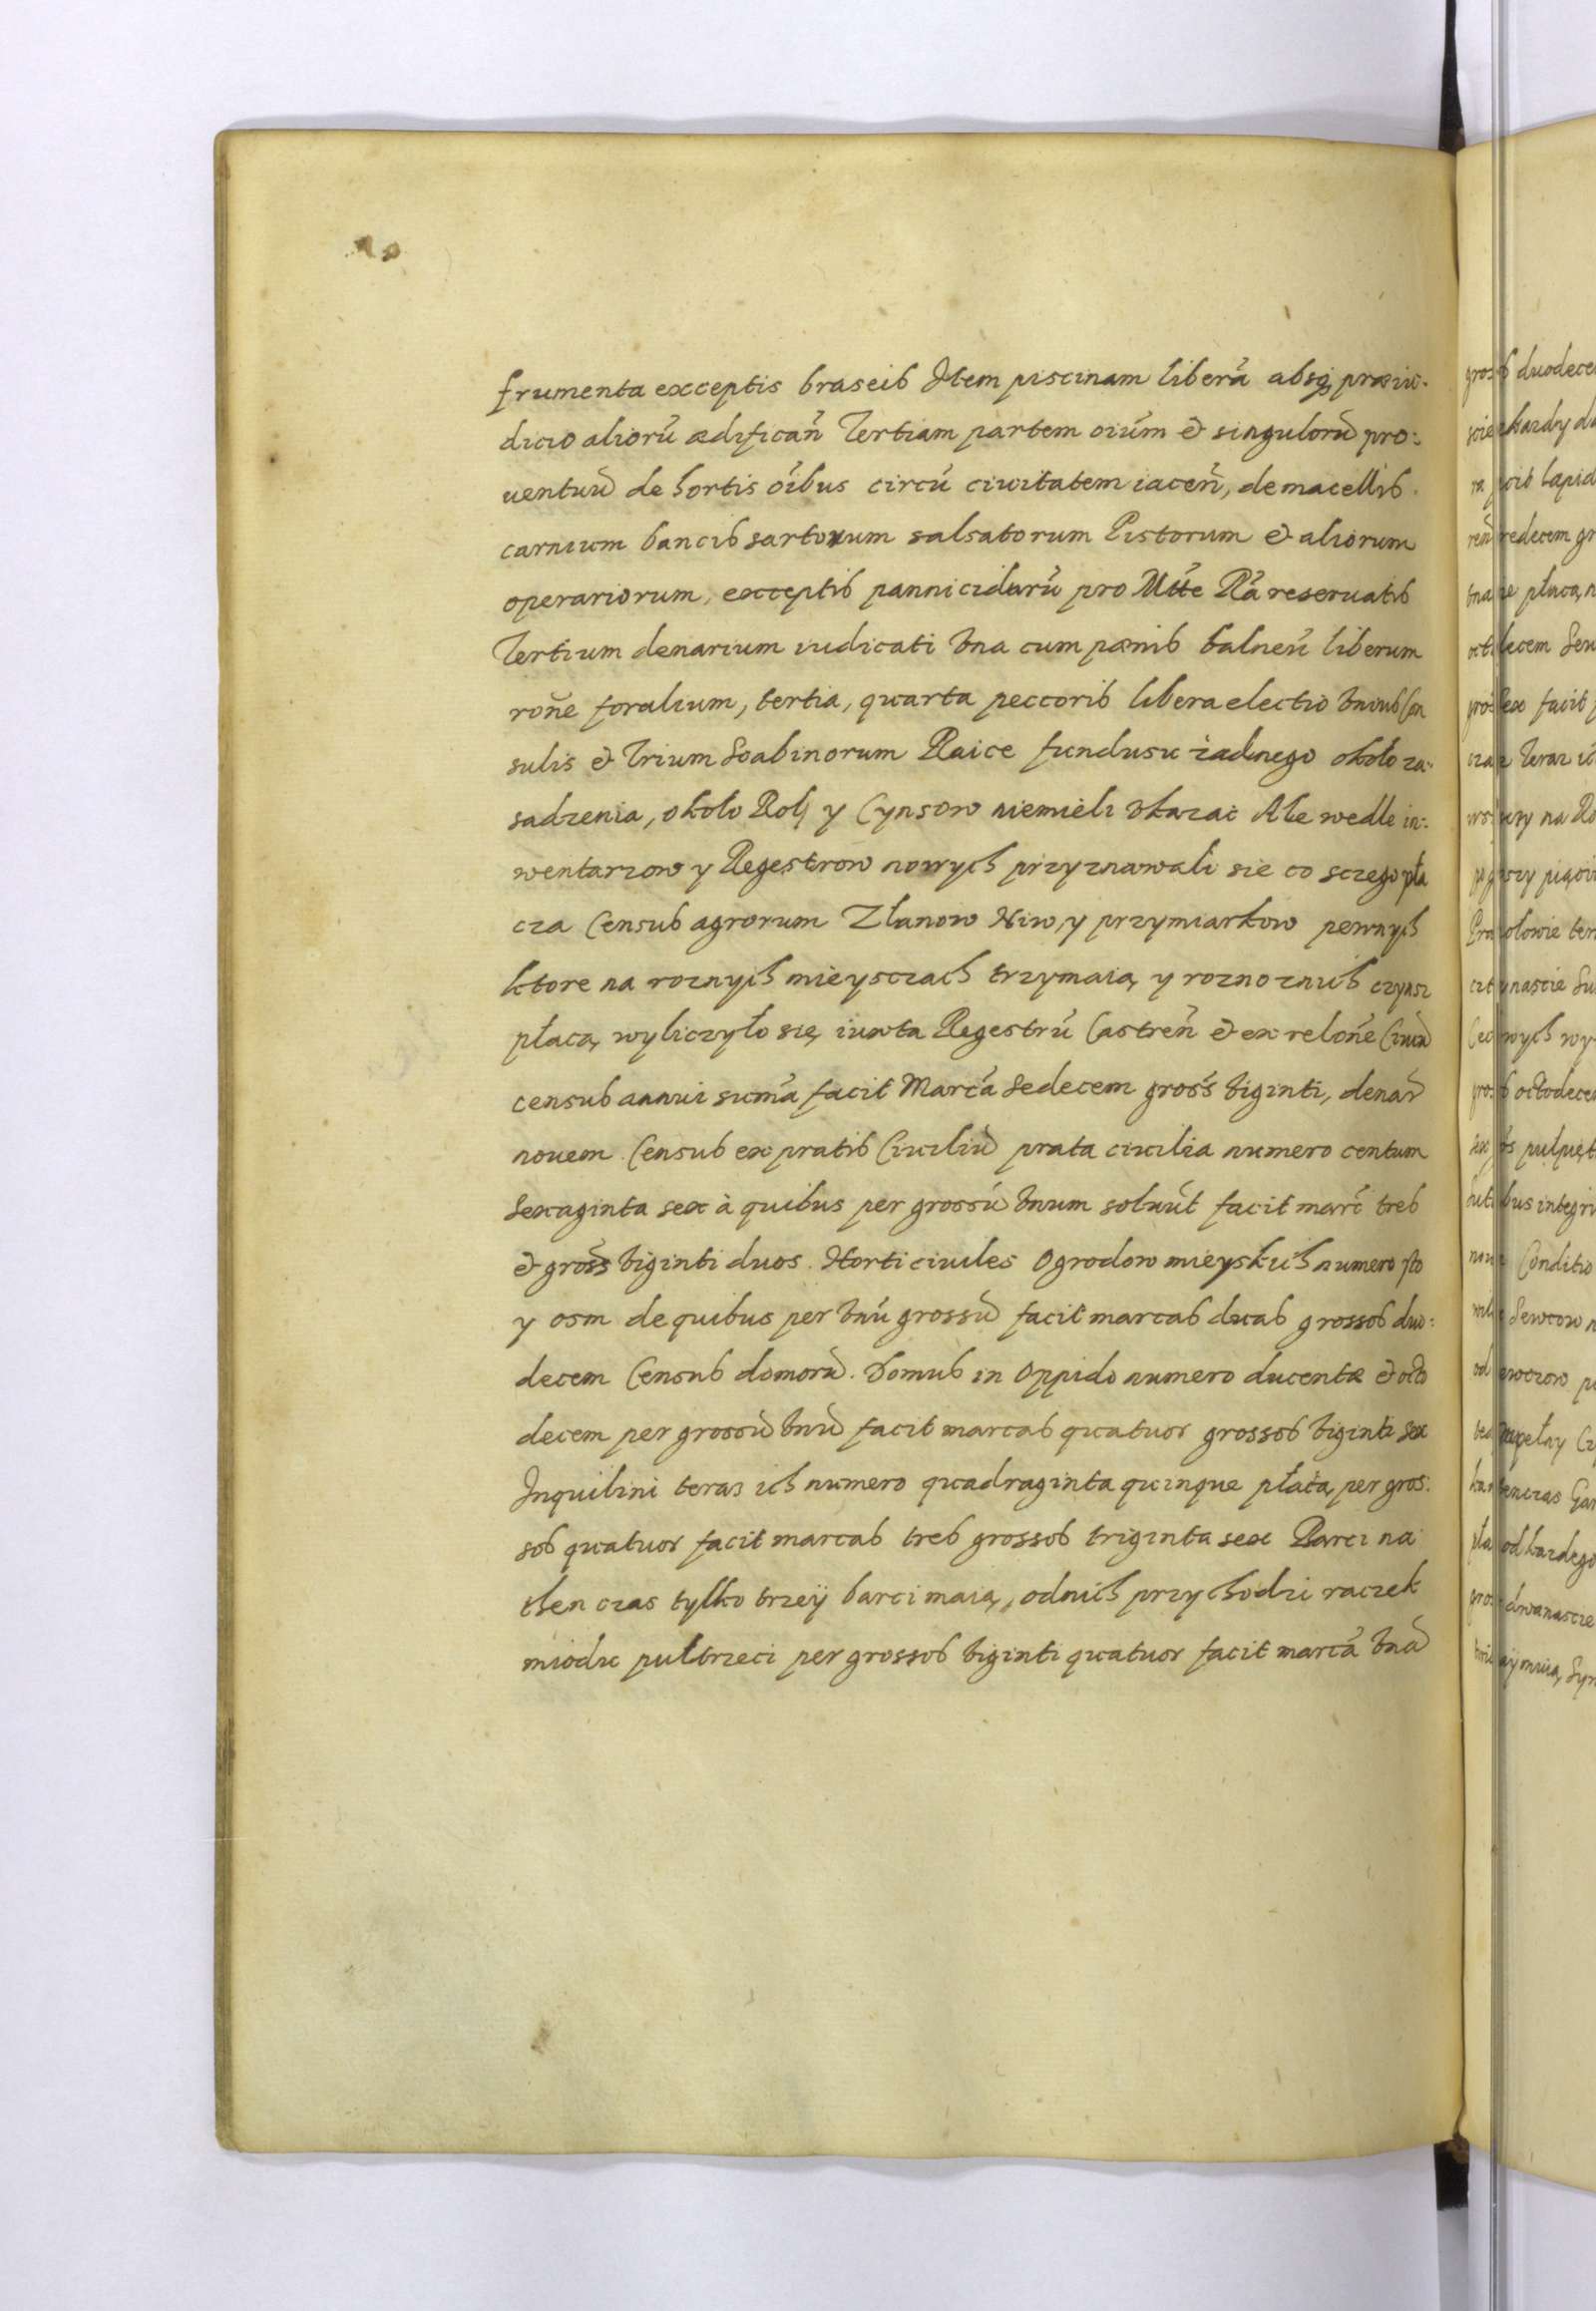 frumenta exceptis braseis Item piscinam liberã absq₃ præiu-
dicio aliorũ ædifican̄ Tertiam partem oĩum & singulorũ pro:
uentuũ de hortis oĩbus circũ ciuitatem iacen̄, de macellis
carnium bancis sartorum salsatorum Pistorum & aliorum
operariorum, exceptis pannicidarũ pro Mtte Rã reseruatis
Tertium denarium iudicati vna cum pænis balneũ liberum
rōne foralium, tertia, quarta peccoris libera electio vnius Con
sulis & Trium Scabinorum Raice fundusu żadnego około za-
sadzenia, około Rolj y Cynsow niemieli vkazać Ale wedle in:
wentarzow y Regestrow nowych przyznawali sie co sczego pła
cza Census agrorum Złanow Niw, y przymiarkow pewnych
ktore na roznych mieysczach trzymaią y rozno znich czynsz
płacą wyliczyło się iuxta Regestrũ Castren̄ & ex relōne Ciuiũ
census annui sum̃a facit Marcã Sedecem gross̃ viginti, denar̃
nouem. Census ex pratis Ciuiliũ prata ciuilia numero centum
Sexaginta sex à quibus per grossũ vnum soluũt facit marc̃ tres
& gross̃ viginti duos. Horti ciuiles Ogrodow mieyskich numero sto
y osm de quibus per vnũ grossũ facit marcas duas grossos duo:
decem Census domorũ. Domus in Oppido numero ducentæ & octo
decem per grossũ vnũ facit marcas quatuor grossos viginti sex
Inquilini teras ich numero quadraginta quinque płatą per gros:
sos quatuor facit marcas tres grossos triginta sex Barci na
then czas tylko trzeÿ barci maią, odnich przychodzi raczek
miodu pułtrzeci per grossos viginti quatuor facit marcã vnã